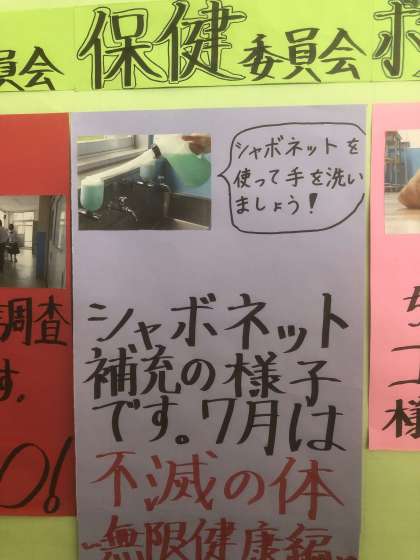 員会
保健委員会
救
シャボネットを
使って手を洗い
ましょう!
シャボネット
補充の様子
です。7月は
不滅の体
~無限健康編
調査
す。
O!
様